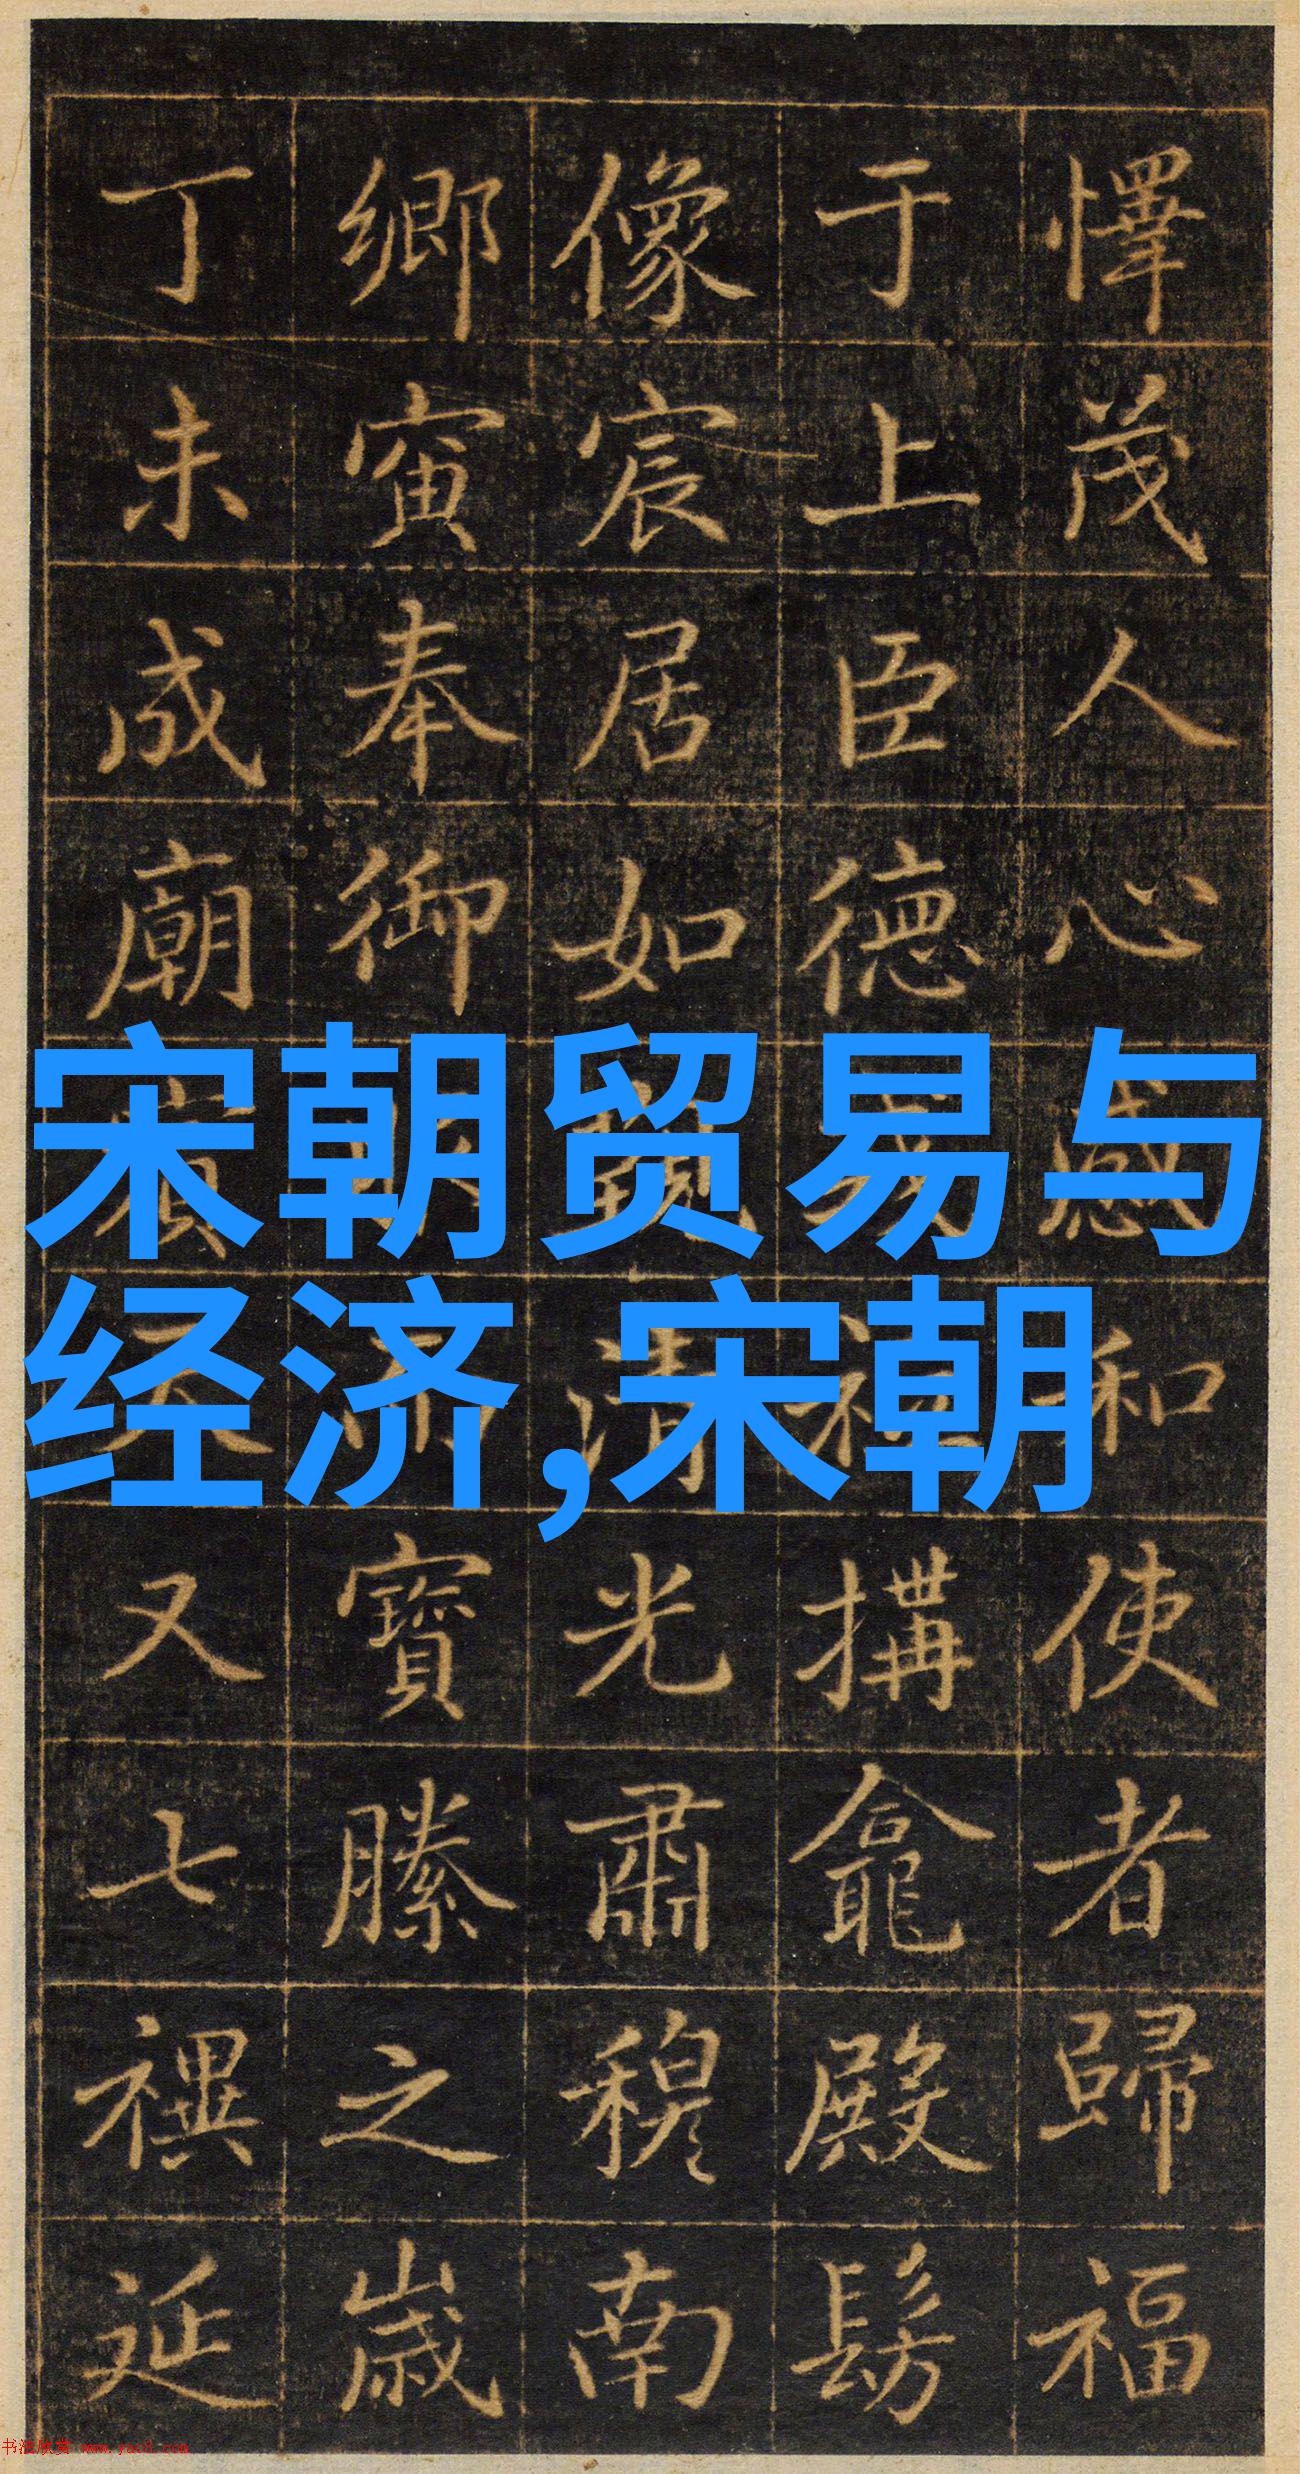 懌茂人心感和使者歸福
于上臣德搆龕殿髣
像宸居如清光肅穆南
鄉寅奉御寶縢之歲
丁未成廟又七禩延
宋朝贸易与
经济,宋朝
书法欣赏 www.yac8.com